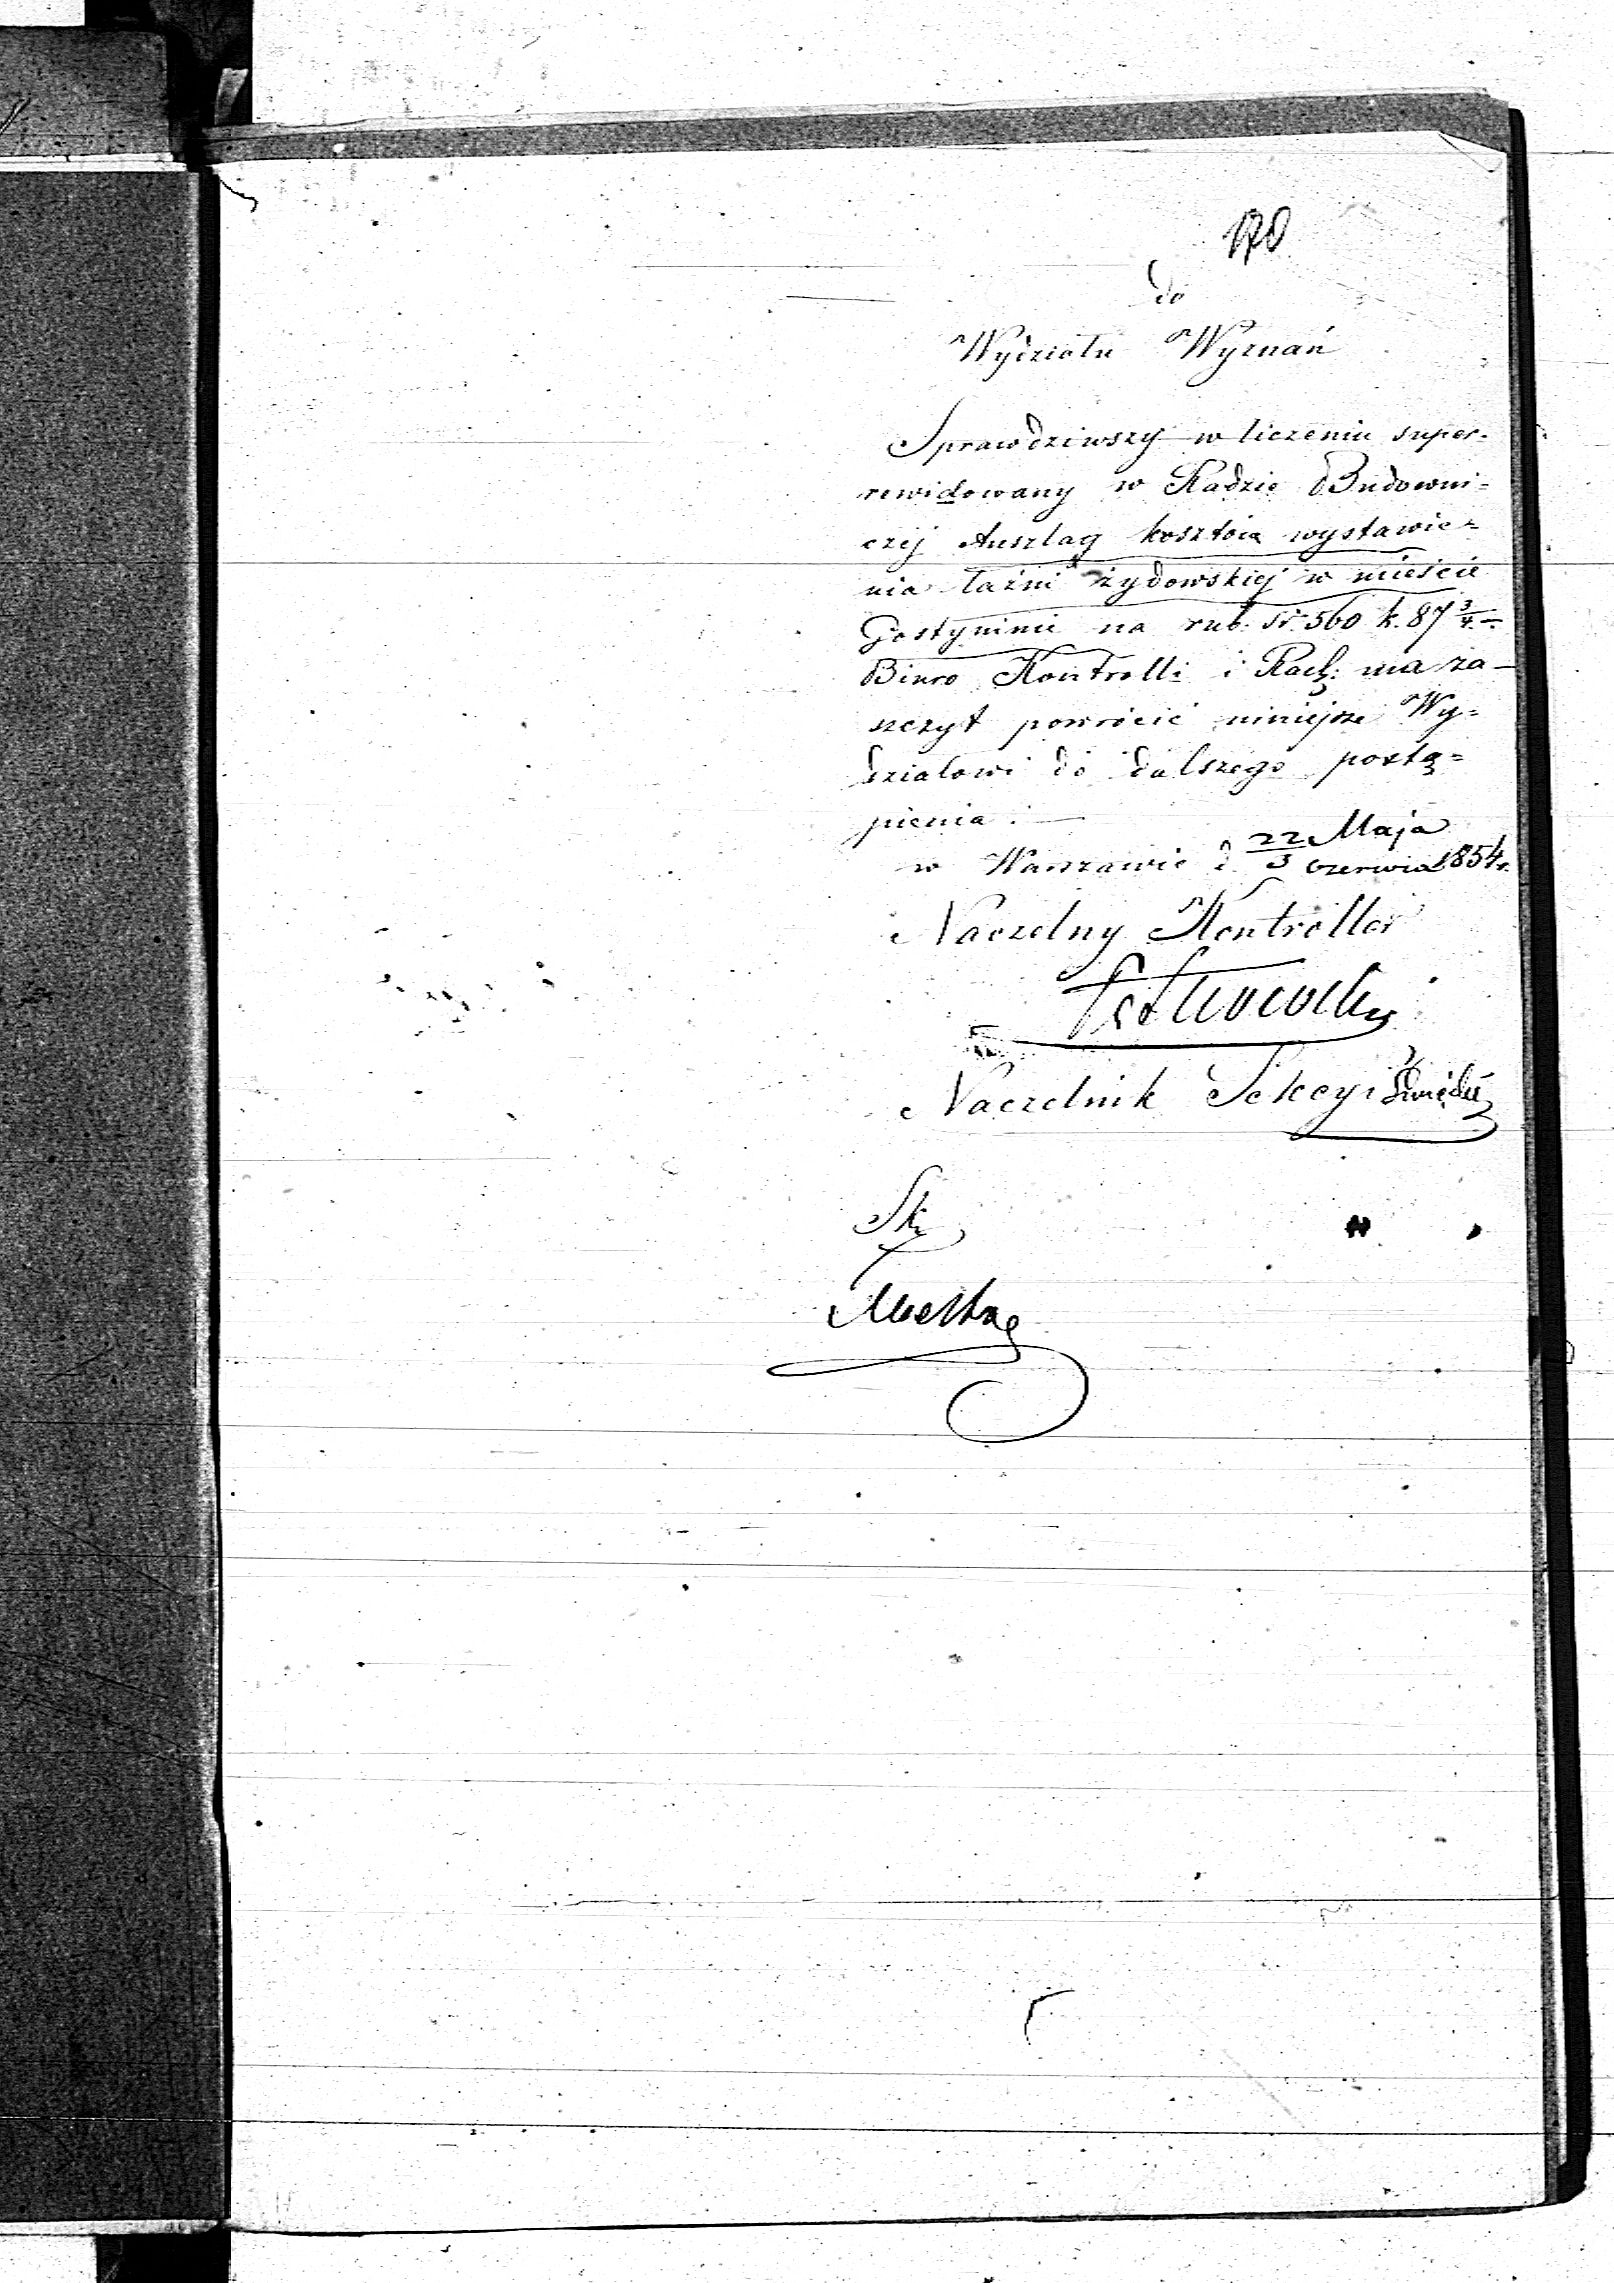 170
do
Wydziału Wyznań
Sprawdziwszy w liczeniu super-
rewidowany w Radzie Budowni=
czej Anszlag kosztów wystawie=
nia łaźni żydowskiej w mieście
Gostyninie na rub: sr. 560 k. 87 3/4 -
Biuro Kontrolli i Rach: ma za-
szczyt powrócić niniejsze Wy=
działowi do dalszego postą=
pienia. —
w Warszawie d. 22 Maja / 3 Czerwca 1854 r.
Naczelny Kontroller
Naczelnik Sekcyi